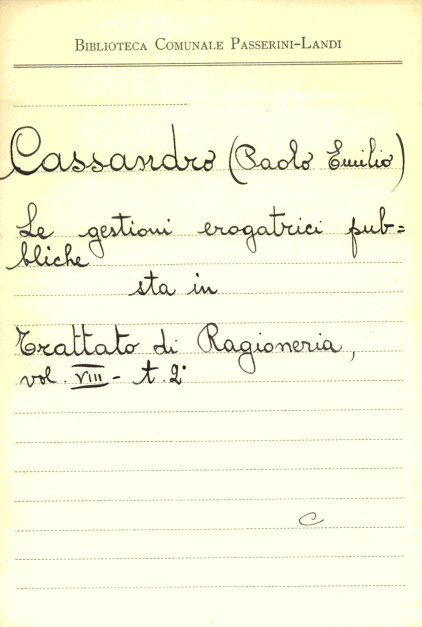 Biblioteca Comunale Passerini-Landi
Cassandro (Paolo Emilio)
Le gestioni erogatrici pub=
bliche
sta in
Trattato di Ragioneria,
vol. VIII - t. 2°
C